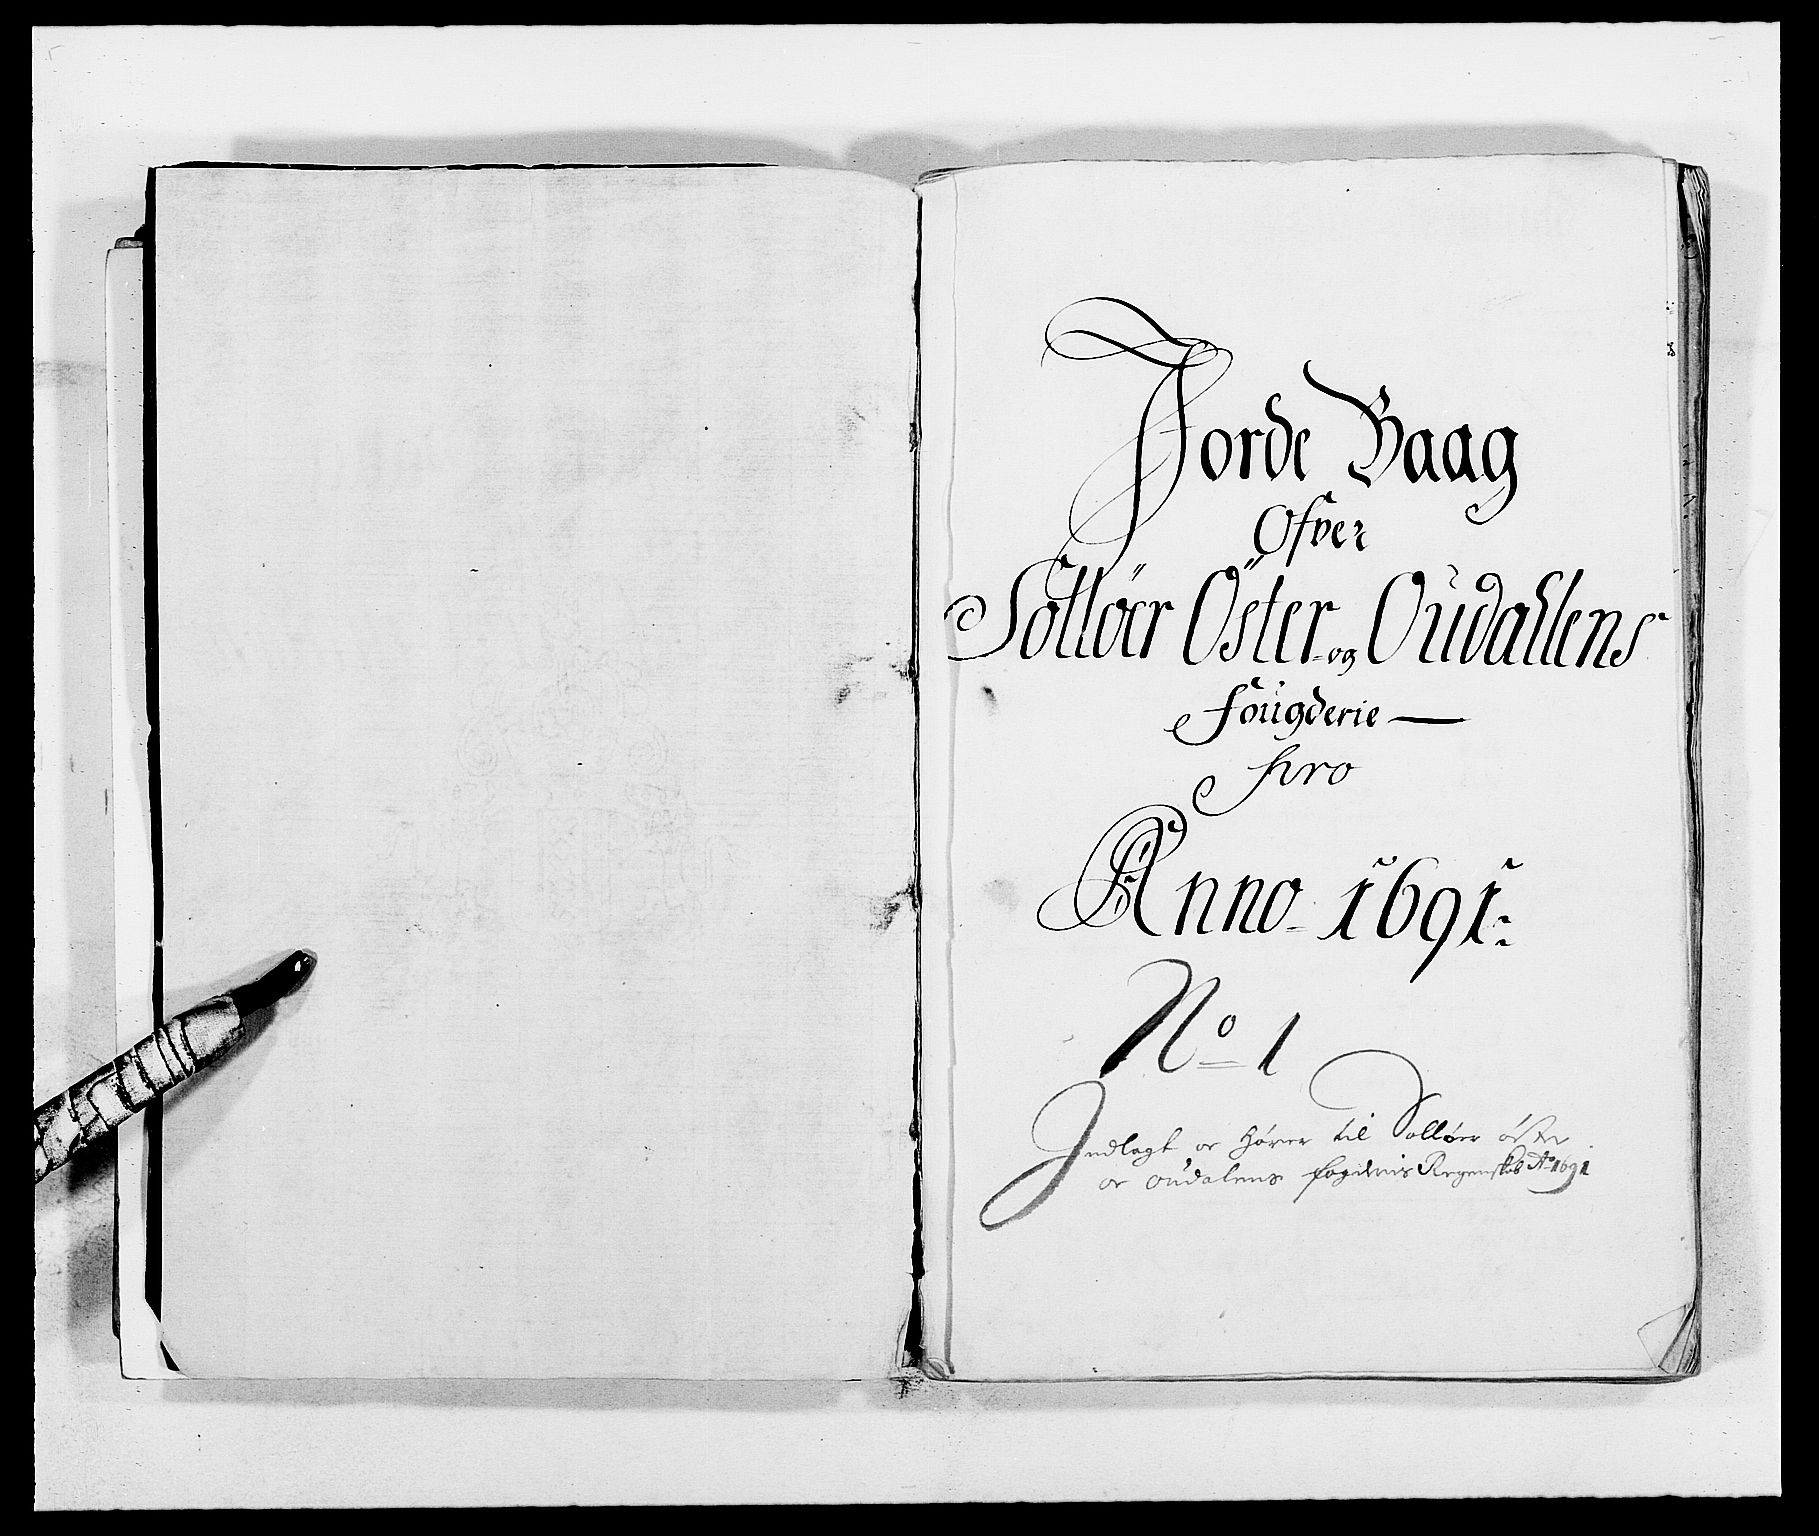 Jorde Baag
Ofver
Solløer Öster og Oudahlens
Fougderie
pro
Anno 1691:
No 1
Indlagt oc hörer til Solløer öster
oc Oudalens fogderis Regenskab Ao 1691